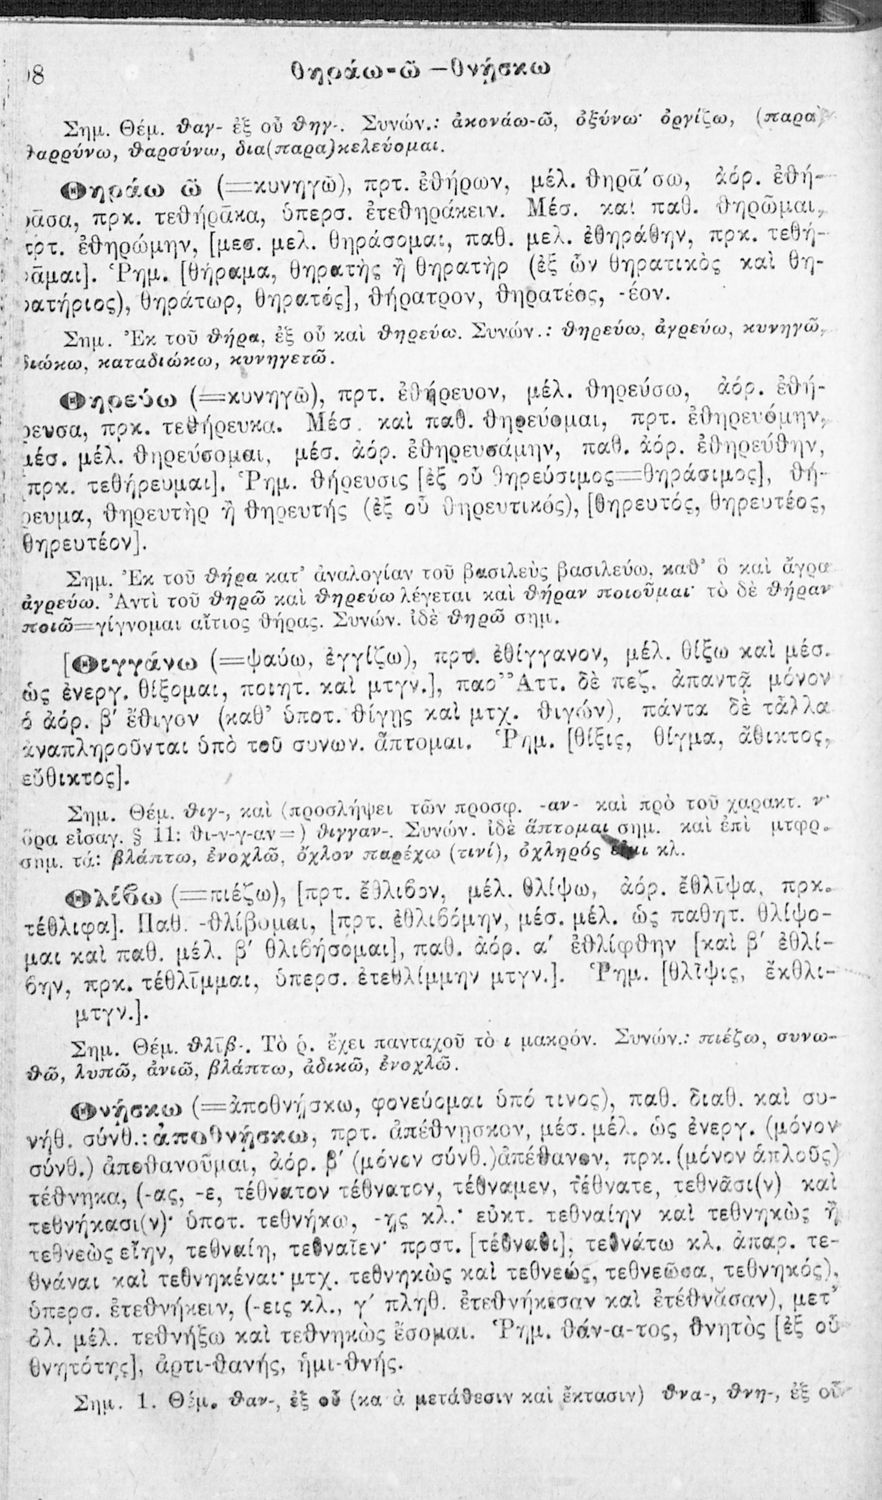 08 θηράω-ῶ —θνήσκω
Σημ. Θέμ. θαγ- ἐξ οὗ θηγ-. Συνών.: ἀκονάω-ῶ, ὀξύνω· ὀργίζω, (παρα)
θαρρύνω, θαρσύνω, δια(παρα)κελεύομαι.
Θηράω ῶ (=κυνηγῶ), πρτ. ἐθήρων, μέλ. θηρᾱ́σω, ἀόρ. ἐθή-
ρᾱσα, πρκ. τεθήρᾱκα, ὑπερσ. ἐτεθηράκειν. Μέσ. καὶ παθ. θηρῶμαι,
πρτ. ἐθηρώμην, [μεσ. μελ. θηράσομαι, παθ. μελ. ἐθηράθην, πρκ. τεθή-
ρᾱμαι]. Ῥημ. [θήραμα, θηρατὴς ἢ θηρατὴρ (ἐξ ὧν θηρατικὸς καὶ θη-
ρατήριος), θηράτωρ, θηρατός], θήρατρον, θηρατέος, -έον.
Σημ. Ἐκ τοῦ θήρα, ἐξ οὗ καὶ θηρεύω. Συνών.: θηρεύω, ἀγρεύω, κυνηγῶ,
διώκω, καταδιώκω, κυνηγετῶ.
Θηρεύω (=κυνηγῶ), πρτ. ἐθήρευον, μέλ. θηρεύσω, ἀόρ. ἐθή-
ρευσα, πρκ. τεθήρευκα. Μέσ. καὶ παθ. θηρεύομαι, πρτ. ἐθηρευόμην,
μέσ. μέλ. θηρεύσομαι, μέσ. ἀόρ. ἐθηρευσάμην, παθ. ἀόρ. ἐθηρεύθην,
[πρκ. τεθήρευμαι]. Ῥημ. θήρευσις [ἐξ οὗ θηρεύσιμος=θηράσιμος], θή-
ρευμα, θηρευτὴρ ἢ θηρευτής (ἐξ οὗ θηρευτικός), [θηρευτός, θηρευτέος,
θηρευτέον].
Σημ. Ἐκ τοῦ θήρα κατ' ἀναλογίαν τοῦ βασιλεὺς βασιλεύω, καθ' ὃ καὶ ἄγρα
ἀγρεύω. Ἀντὶ τοῦ θηρῶ καὶ θηρεύω λέγεται καὶ θήραν ποιοῦμαι· τὸ δὲ θήραν
ποιῶ=γίγνομαι αἴτιος θήρας. Συνών. ἰδὲ θηρῶ σημ.
[Θιγγάνω (=ψαύω, ἐγγίζω), πρτ. ἐθίγγανον, μέλ. θίξω καὶ μέσ.
ὡς ἐνεργ. θίξομαι, ποιητ. καὶ μτγν.], παρ' Ἀττ. δὲ πεζ. ἀπαντᾷ μόνον
ὁ ἀόρ. β' ἔθιγον (καθ' ὑποτ. θίγῃς καὶ μτχ. θιγών), πάντα δὲ τἆλλα
ἀναπληροῦνται ὑπὸ τοῦ συνων. ἅπτομαι. Ῥημ. [θίξις, θίγμα, ἄθικτος,
εὔθικτος].
Σημ. Θέμ. θιγ-, καὶ (προσλήψει τῶν προσφ. -αν- καὶ πρὸ τοῦ χαρακτ. ν·
ὅρα εἰσαγ. § 11: θι-ν-γ-αν=) θιγγαν-. Συνών. ἰδὲ ἅπτομαι σημ. καὶ ἐπὶ μτφρ.
σημ. τά: βλάπτω, ἐνοχλῶ, ὄχλον παρέχω (τινί), ὀχληρός εἰμι κλ.
Θλίβω (=πιέζω), [πρτ. ἔθλιβον, μέλ. θλίψω, ἀόρ. ἔθλῑψα, πρκ.
τέθλιφα]. Παθ. -θλίβομαι, [πρτ. ἐθλιβόμην, μέσ. μέλ. ὡς παθητ. θλίψο-
μαι καὶ παθ. μέλ. β' θλιβήσομαι], παθ. ἀόρ. α' ἐθλίφθην [καὶ β' ἐθλί-
βην, πρκ. τέθλῑμμαι, ὑπερσ. ἐτεθλίμμην μτγν.]. Ῥημ. [θλῖψις, ἔκθλι-
μτγν.].
Σημ. Θέμ. θλῑβ-. Τὸ ῥ. ἔχει πανταχοῦ τὸ ι μακρόν. Συνών.: πιέζω, συνω-
θῶ, λυπῶ, ἀνιῶ, βλάπτω, ἀδικῶ, ἐνοχλῶ.
Θνήσκω (=ἀποθνήσκω, φονεύομαι ὑπό τινος), παθ. διαθ. καὶ συ-
νήθ. σύνθ.: ἀποθνήσκω, πρτ. ἀπέθνησκον, μέσ. μέλ. ὡς ἐνεργ. (μόνον
σύνθ.) ἀποθανοῦμαι, ἀόρ. β' (μόνον σύνθ.) ἀπέθανον, πρκ. (μόνον ἁπλοῦς)
τέθνηκα, (-ας, -ε, τέθνατον τέθνατον, τέθναμεν, τέθνατε, τεθνᾶσι(ν) καὶ
τεθνήκασι(ν)· ὑποτ. τεθνήκω, -ῃς κλ.· εὐκτ. τεθναίην καὶ τεθνηκὼς ἢ
τεθνεὼς εἴην, τεθναίη, τεθναῖεν· προστ. [τέθναθι], τεθνάτω κλ. ἀπαρ. τε-
θνάναι καὶ τεθνηκέναι· μτχ. τεθνηκὼς καὶ τεθνεώς, τεθνεῶσα, τεθνηκός),
ὑπερσ. ἐτεθνήκειν, (-εις κλ., γ' πληθ. ἐτεθνήκεσαν καὶ ἐτέθνᾰσαν), μετ'
ὀλ. μέλ. τεθνήξω καὶ τεθνηκὼς ἔσομαι. Ῥημ. θάν-α-τος, θνητὸς [ἐξ οὗ
θνητότης], ἀρτι-θανής, ἡμι-θνής.
Σημ. 1. Θέμ. θαν-, ἐξ οὗ (κα ὰ μετάθεσιν καὶ ἔκτασιν) θνα-, θνη-, ἐξ οὗ